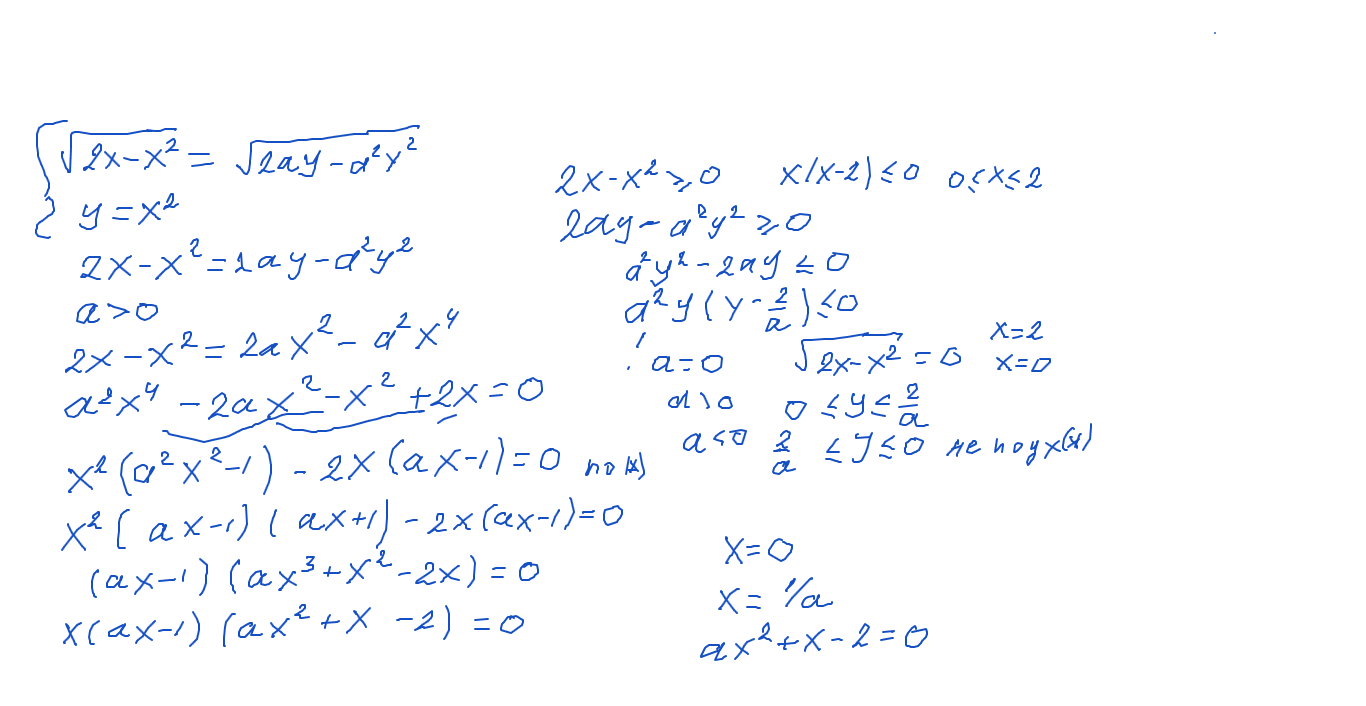 √(2x-x²) = √(2ay-a²y²)
y = x²
2x-x² = 2ay-a²y²
a>0
2x-x² = 2ax² - a²x⁴
a²x⁴ - 2ax² - x² + 2x = 0
x²(a²x²-1) - 2x(ax-1) = 0
x²(ax-1)(ax+1) - 2x(ax-1) = 0
(ax-1)(ax³+x²-2x) = 0
x(ax-1)(ax²+x-2) = 0
2x-x² ≥ 0 x(x-2) ≤ 0 0 ≤ x ≤ 2
2ay - a²y² ≥ 0
a²y² - 2ay ≤ 0
a²y(y - 2/a) ≤ 0
a=0 √(2x-x²) = 0 x=2
x=0
a>0 0 ≤ y ≤ 2/a
a<0 2/a ≤ y ≤ 0 не подх(x)
x=0
x = 1/a
ax²+x-2=0